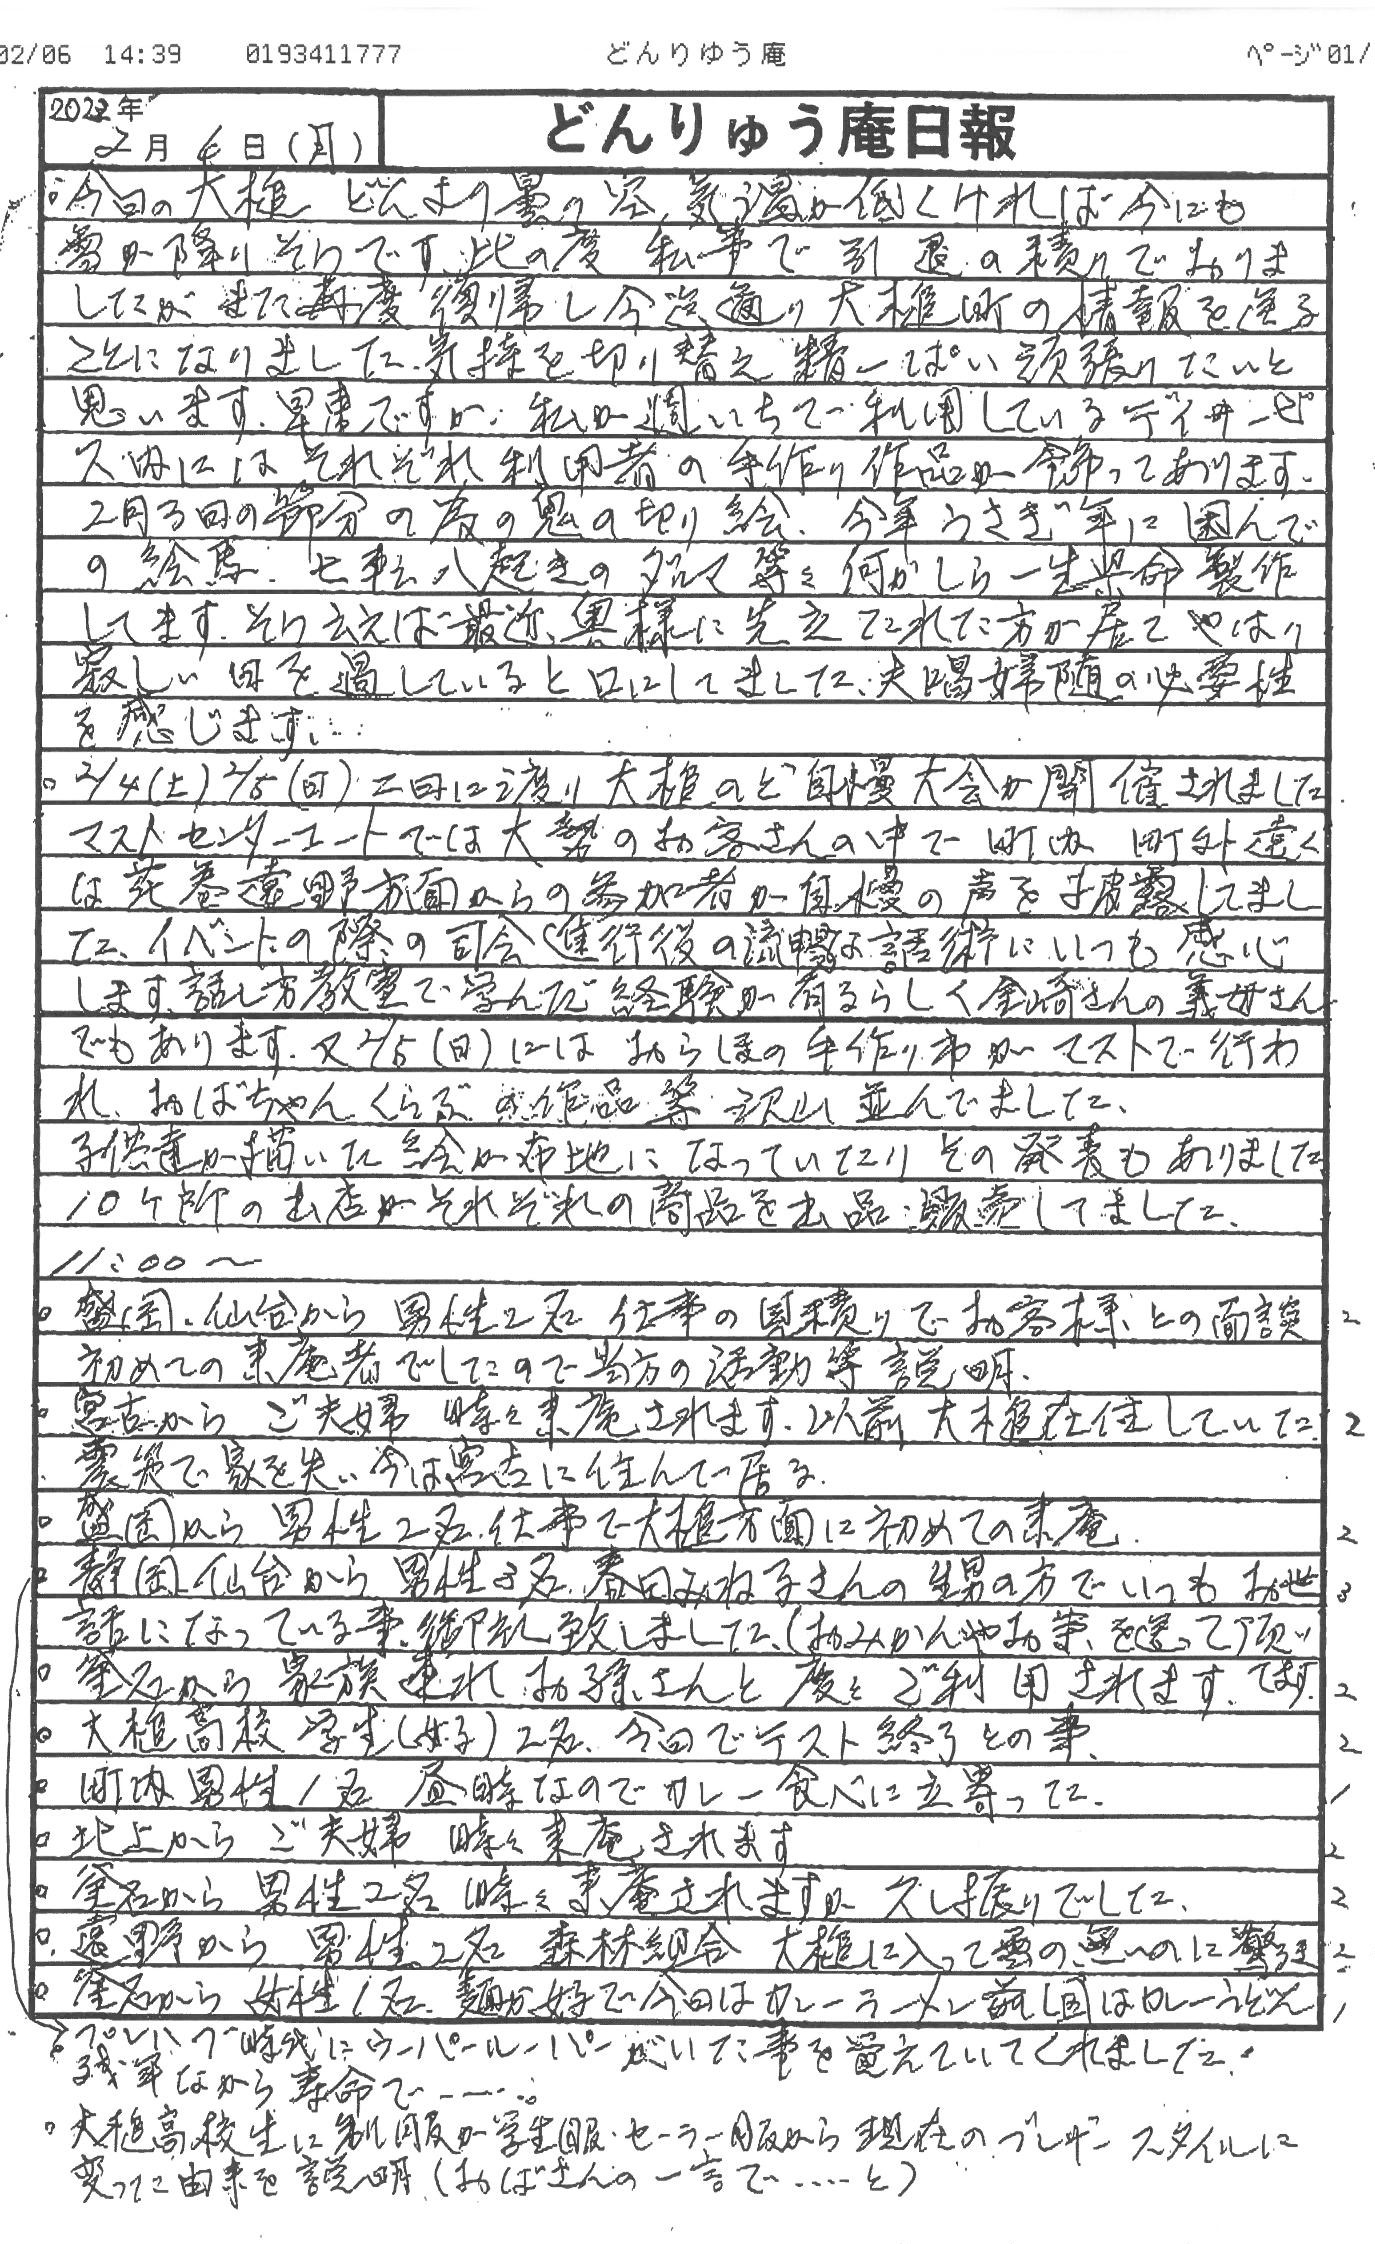 02/06 14:39 0193411777 どんりゅう庵 ページ01/
2023年
2月6日(月)
どんりゅう庵日報
。今日の大槌 どんより曇り空、気温が低くければ今にも
雪が降りそうです。此の度 私事で引退の積りでおりま
したがまた再度復帰し今迄通り大槌町の情報を送る
ことになりました。気持を切り替え精一ぱい頑張りたいと
思います。早速ですが、私が週いちで利用しているデイサービ
ス内にはそれぞれ利用者の手作り作品が飾ってあります。
2月3日の節分の為の鬼の切り絵、今年うさぎ年に因んで
の絵馬、七転八起きのダルマ等々何かしら一生県命製作
してます。そう云えば最近、奥様に先立たれた方が居てやはり
寂しい日を過していると口にしてました、夫唱婦随の必要性
を感じます。
。2/4(土)2/5(日)二日に渡り大槌のど自慢大会が開催されました
マストセンターコートでは大勢のお客さんの中で町内 町外遠く
は花巻遠野方面からの参加者が自慢の声を披露してまし
た。イベントの際の司会進行役の流暢な話術にいつも感心
します。話し方教室で学んだ経験が有るらしく金崎さんの義母さん
でもあります。又2/5(日)にはおらほの手作り市がマストで行わ
れ、おばちゃんくらぶの作品等沢山並んでました、
子供達が描いた絵が布地になっていたりその発表もありました
10ケ所の出店がそれぞれの商品を出品・販売してました。
11:00〜
。盛岡・仙台から男性2名 仕事の見積りでお客様との面談 2
初めての来庵者でしたので当方の活動等説明、
。宮古から ご夫婦 時々来庵されます。以前大槌在住していた 2
震災で家を失い今は宮古に住んで居る。
。盛岡から男性2名、仕事で大槌方面に初めての来庵。 2
。静岡仙台から男性3名、春田みね子さんの甥の方でいつもお世 3
話になっている事、御礼致しました、(おみかんやお茶を送って頂い
てます。
。釜石から家族連れ お孫さんと度々ご利用されます。 2
。大槌高校学生(女子)2名、今日でテスト終了との事、 2
。町内男性1名 昼時なのでカレー食べに立寄った。 1
。北上から ご夫婦 時々来庵されます 2
。釜石から男性2名 時々来庵されますが久し振りでした、 2
。遠野から男性2名 森林組合 大槌に入って雪の無いのに驚き 2
。釜石から女性1名、麺が好で今日はカレーラーメン前回はカレーうどん 1
→プレハブ時代にウーパールーパーがいた事を覚えていてくれました。
残年ながら寿命で-----。
。大槌高校生に制服が学生服・セーラー服から現在のブレザースタイルに
変った由来を説明(おばさんの一言で……と)